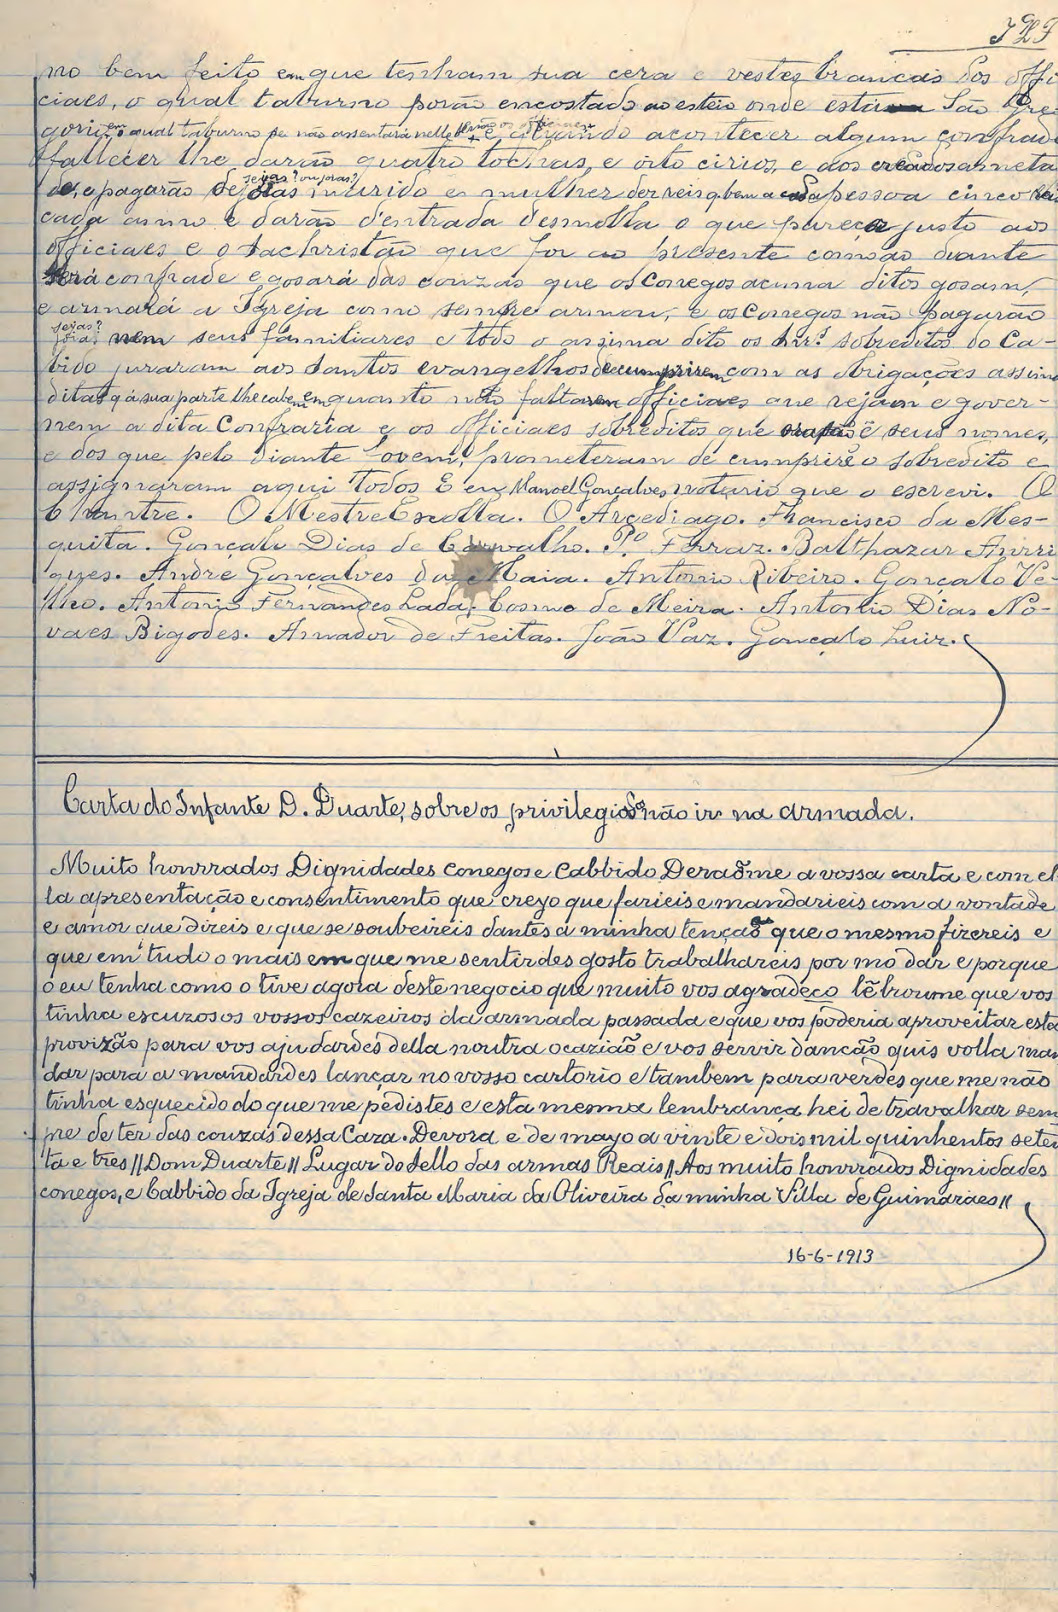 mo bem feito em que tenham sua cera e vestes brancas dos offi
ciaes, o qual taburno porão encostado ao esteio onde está São Gre
gorio, em o qual taburno se não assentará nelle senão os officiaes + E quando acontecer algum confrade
fallecer lhe darão quatro tochas, e oito cirios, e aos creados ameta
de, e pagarão de joias sejas? ou joias? marido e mulher dez reis q. bem a cada pessoa cinco reis
cada anno e darão d'entrada desmolla o que pareça justo aos
officiaes e o sachristão que for ao presente como ao diante
será confrade e gosará das couzas que os Conegos acima ditos gosam,
e armará a Igreja como sempre armou, e os Conegos não pagarão
sejas? joia? nem seus familiares e todo o assima dito os Snr.s sobreditos do Ca-
bido juraram aos Santos evangelhos de cumprirem com as obrigações assima
ditas q á sua parte lhe cabem, em quanto não faltarem officiaes que rejam e gover-
nem a dita Confraria e os officiaes sobreditos que em seus nomes,
e dos que pelo diante forem, prometeram de cumprirẽ o sobredito e
assignaram aqui todos E eu Manoel Gonçalves notario que o escrevi. O
Chantre. O Mestre Escolla. O Arcediago. Francisco da Mes-
quita. Gonçalo Dias de Carvalho. P.o Ferraz. Balthazar Anrri
ques. Andre Gonçalves da Maia. Antonio Ribeiro. Gonçalo Ve-
lho. Antonio Fernandes Lada. Cosmo de Meira. Antonio Dias No-
vaes Bigodes. Amador de Freitas. João Vaz. Gonçalo Luiz.
Carta do Infante D. Duarte, sobre os privilegiados não ir na armada.
Muito honrrados Dignidades conegos e Cabbido Deraõme a vossa carta e com el
la apresentação e consentimento que creyo que farieis e mandarieis com a vontade
e amor que dizeis e que se soubeireis dantes a minha tenção que o mesmo fizereis e
que em tudo o mais em que me sentirdes gosto trabalhareis por mo dar e porque
o eu tenha como o tive agora deste negocio que muito vos agradeço lẽbroume que vos
tinha escuzos os vossos cazeiros da armada passada e que vos poderia aproveitar esta
provizão para vos ajudardes della noutra ocazião e vos servir danção quis volla man
dar para a mandardes lançar no vosso cartorio e tambem para verdes que me não
tinha esquecido do que me pedistes e esta mesma lembrança hei de travalhar sem
pre de ter das couzas dessa Caza. Devora e de mayo a vinte e dois mil quinhentos seten
ta e tres // Dom Duarte // Lugar do sello das armas Reais // Aos muito honrrados Dignidades
conegos, e Cabbido da Igreja de Santa Maria da Oliveira da minha Villa de Guimarães //
16-6-1913